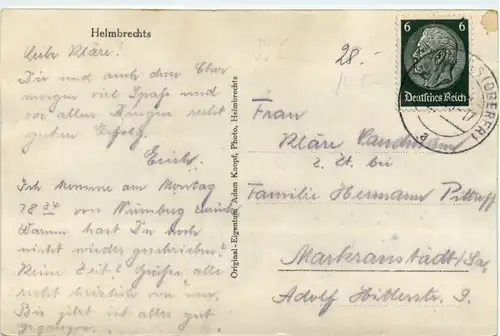 Helmbrechts
Liebe Kläre!
Dir und auch dem Eber
morgen viel Spaß und
vor allen Dingen recht
guten Erfolg.
Erich.
Ich komme am Montag
18 34 von Nürnberg zurück
Warum hast Du noch
nicht wieder geschrieben?
Keine Zeit? Grüße alle
recht herzlich von mir.
Bis jetzt ist alles gut
gegangen.
Original-Eigentum Adam Knopf, Photo, Helmbrechts
28.-
6 6
Deutsches Reich
(OBERFR)
a
Frau
Kläre
z. Zt. bei
Familie Hermann
Markranstädt/Sa.
Adolf Hitlerstr. 9.